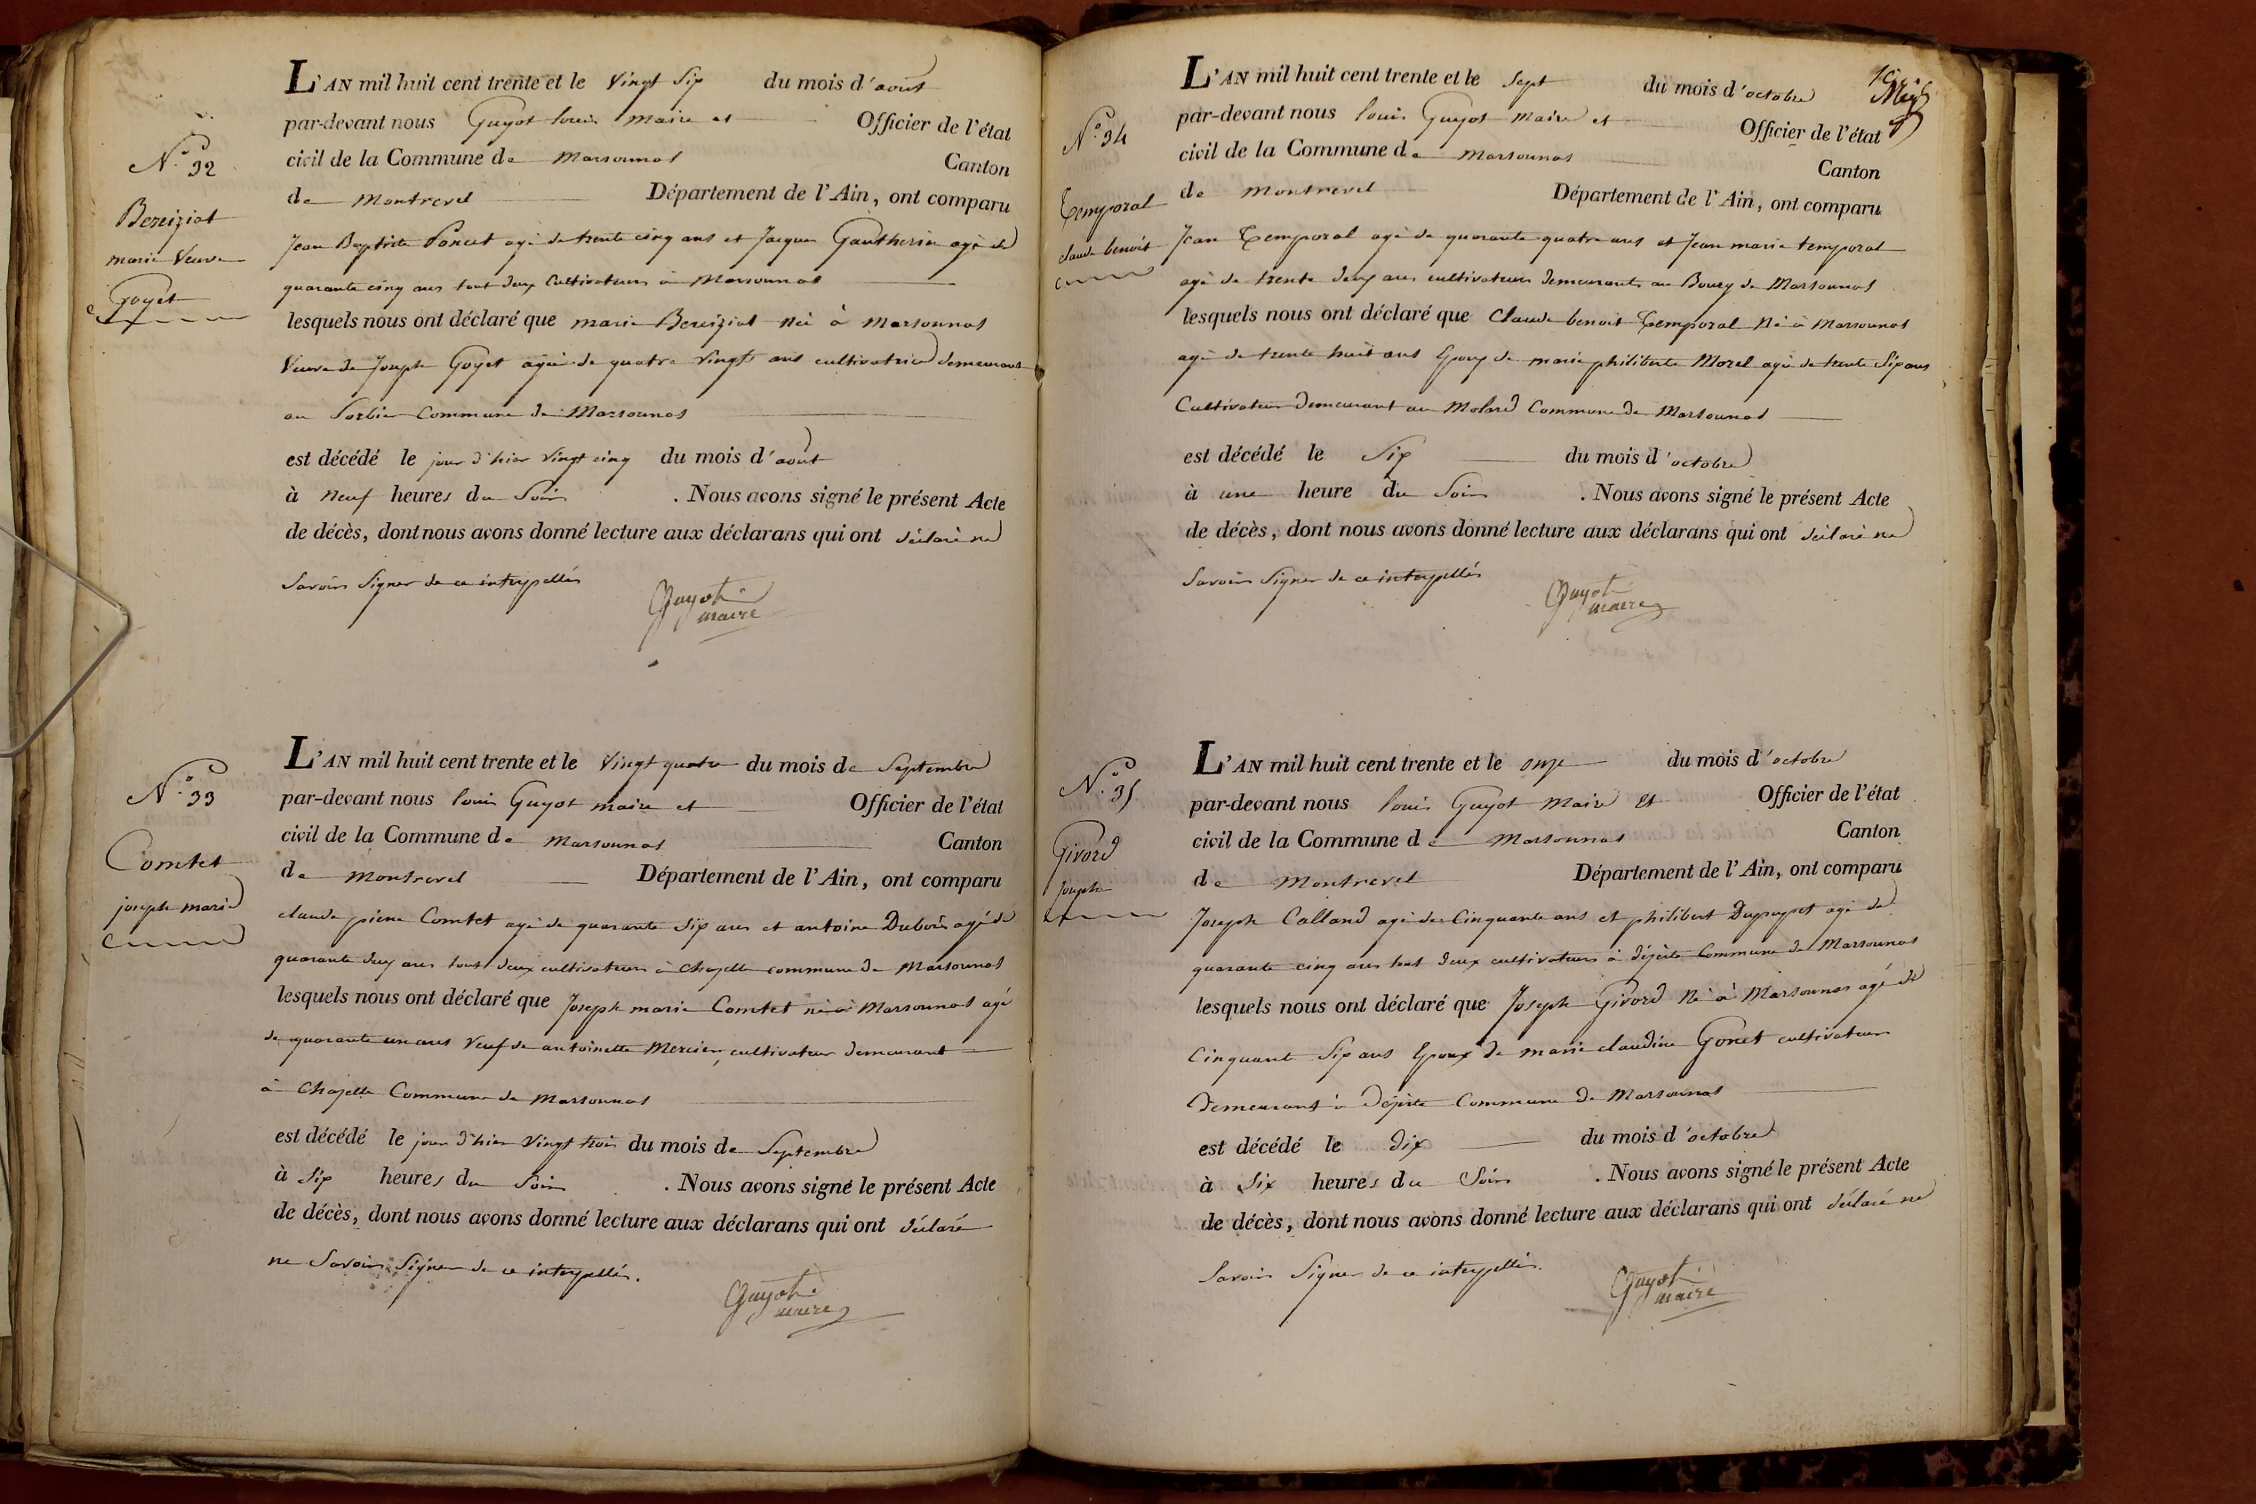 N.° 32
Bereiziat
marie Veuve
Goyet
L'AN mil huit cent trente et le Vingt Six du mois d'août
par-devant nous Guyot louis maire et Officier de l'état
civil de la Commune de Marsonnas Canton
de Montrevel Département de l'Ain, ont comparu
Jean Baptiste Poncet agé de trente cinq ans et Jacques Gautherin agé de
quarante cinq ans tout deux Cultivateurs à Marsonnas
lesquels nous ont déclaré que marie Bereiziat Née à Marsonnas
Veuve de Joseph Goyet agée de quatre Vingts ans cultivatrice demeurant
au Sorbier Commune de Marsonnas
est décédé le jour d'hier Vingt cinq du mois d'août
à Neuf heures du Soir . Nous avons signé le présent Acte
de décès, dont nous avons donné lecture aux déclarans qui ont déclaré ne
Savoir Signer de ce interpellés
Guyot
maire
N.° 33
Comtet
joseph marie
L'AN mil huit cent trente et le Vingt quatre du mois de Septembre
par-devant nous louis Guyot maire et Officier de l'état
civil de la Commune de Marsonnas Canton
de Montrevel Département de l'Ain, ont comparu
claude pierre Comtet agé de quarante Six ans et antoine Dubois agé de
quarante deux ans tout deux cultivateurs à Chazelle commune de Marsonnas
lesquels nous ont déclaré que Joseph marie Comtet né à Marsonnas agé
de quarante un ans Veuf de antoinette Mercier, cultivateur demeurant
à Chazelle Commune de Marsonnas
est décédé le jour d'hier Vingt trois du mois de Septembre
à Six heures du Soir . Nous avons signé le présent Acte
de décès, dont nous avons donné lecture aux déclarans qui ont déclaré
ne Savoir Signer de ce interpellés.
Guyot
maire
N.° 34
Temporal
claude benoit
L'AN mil huit cent trente et le Sept du mois d'octobre
par-devant nous louis Guyot maire et Officier de l'état
civil de la Commune de Marsonnas Canton
de Montrevel Département de l'Ain, ont comparu
Jean Temporal agé de quarante quatre ans et Jean marie temporal
agé de trente deux ans cultivateurs demeurants au Bourg de Marsonnas
lesquels nous ont déclaré que Claude benoit Temporal Né à Marsonnas
agé de trente huit ans Epoux de marie philiberte Morel agée de trente Six ans
Cultivateur demeurant au Molard Commune de Marsonnas
est décédé le Six du mois d'octobre
à une heure du Soir . Nous avons signé le présent Acte
de décès, dont nous avons donné lecture aux déclarans qui ont déclaré ne
Savoir Signer de ce interpellés
Guyot
maire
N.° 35
Givord
joseph
L'AN mil huit cent trente et le onze du mois d'octobre
par-devant nous louis Guyot Maire Et Officier de l'état
civil de la Commune de Marsonnas Canton
de Montrevel Département de l'Ain, ont comparu
Joseph Calland agé de Cinquante ans et philibert Dupuypet agé de
quarante cinq ans tout deux cultivateurs à Commune de Marsonnas
lesquels nous ont déclaré que Joseph Givord Né à Marsonnas agé de
Cinquante Six ans Epoux de marie claudine Gonet cultivateur
Demeurant à Commune de Marsonnas
est décédé le dix du mois d'octobre
à Six heures du Soir . Nous avons signé le présent Acte
de décès, dont nous avons donné lecture aux déclarans qui ont déclaré ne
Savoir Signer de ce interpellés.
Guyot
maire